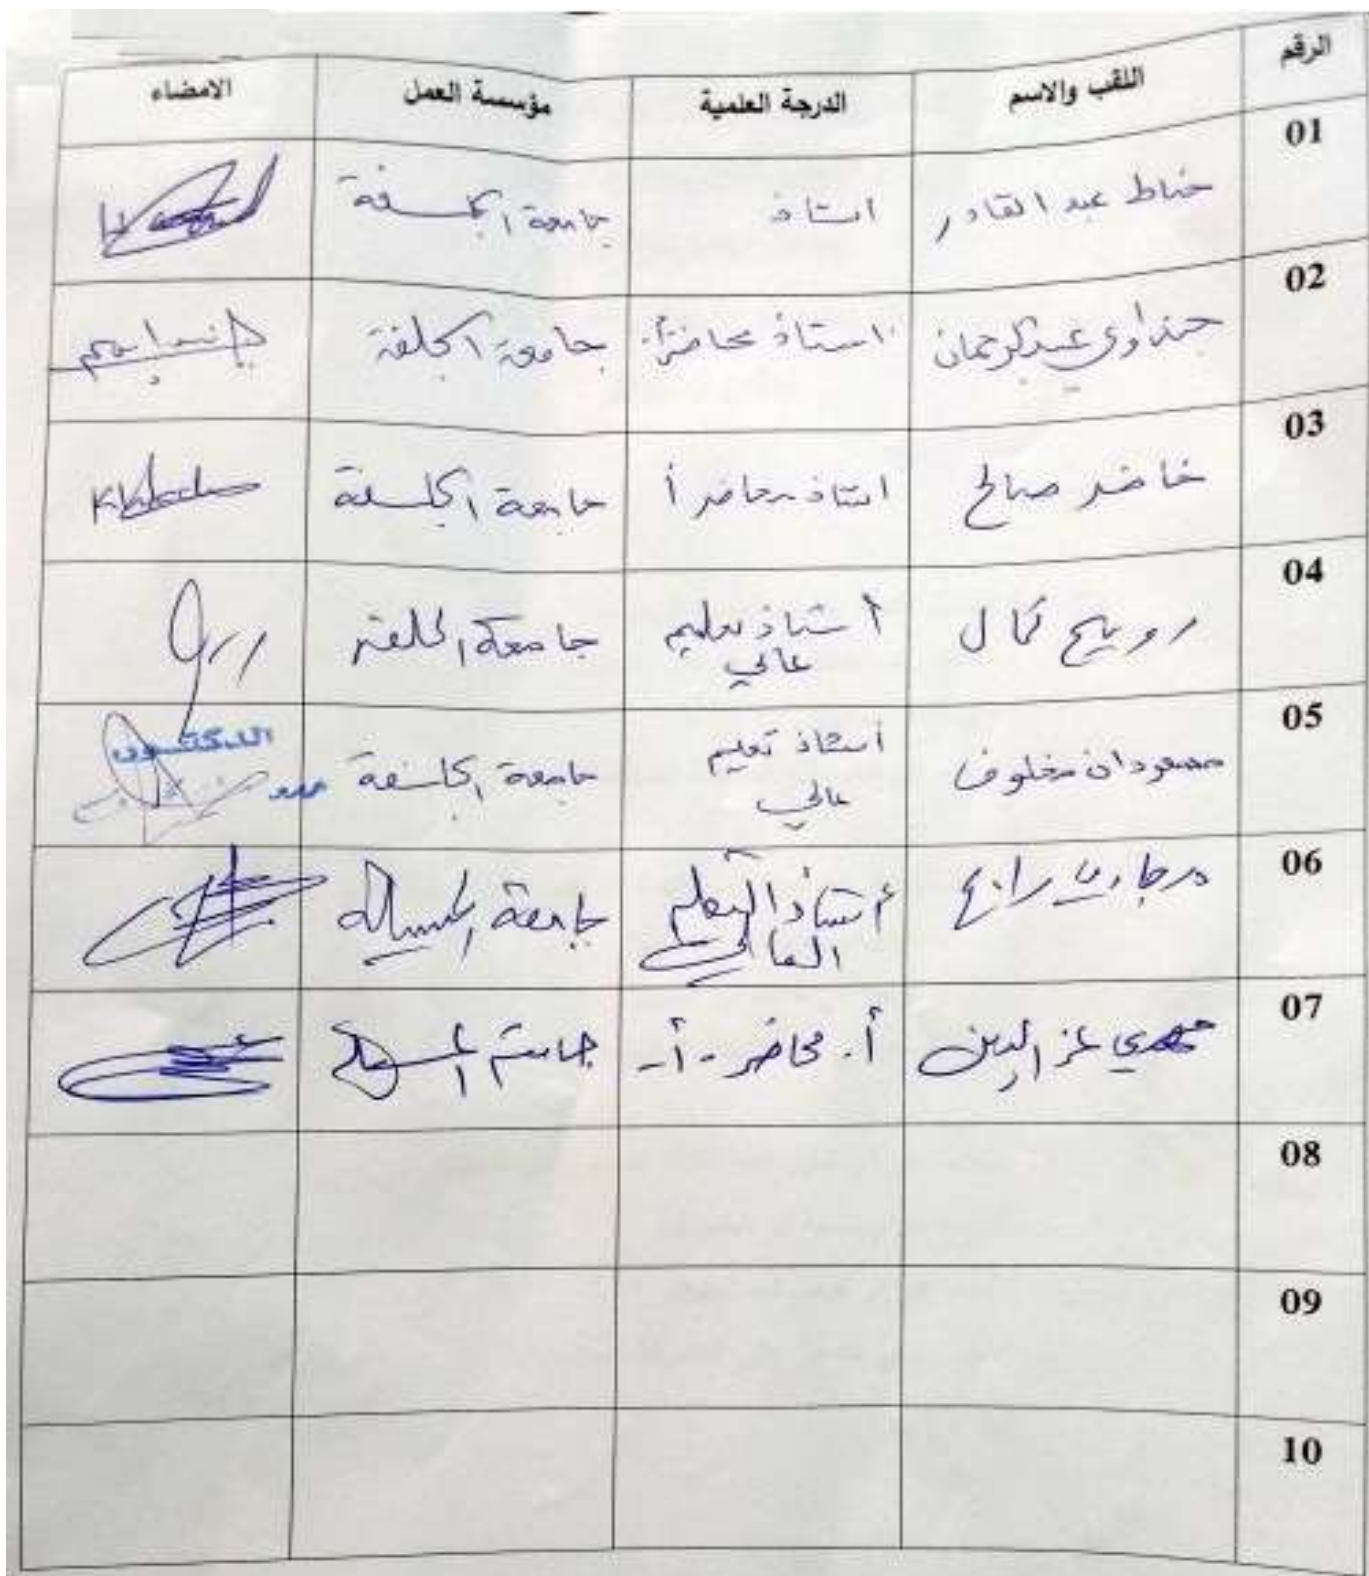 الرقم اللقب والاسم الدرجة العلمية مؤسسة العمل الامضاء
01 خناط عبد القادر استاذ جامعة الجلفة
02 عبد الرحمان استاذ محاضر أ جامعة الجلفة
03 خاضر صالح استاذ محاضر أ جامعة الجلفة
04 رويبح كمال أستاذ تعليم عالي جامعة الجلفة
05 مسعودان مخلوف أستاذ تعليم عالي جامعة الجلفة الدكتور
06 أستاذ التعليم العالي جامعة المسيلة
07 عز الدين أ. محاضر - أ - جامعة المسيلة
08
09
10